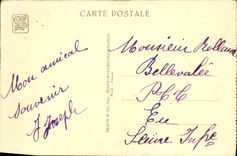 CARTE POSTALE
Mon amical
souvenir
J Joseph
Monsieur Rolland
Bellevalée
P.C.C
Eu
Seine Infre